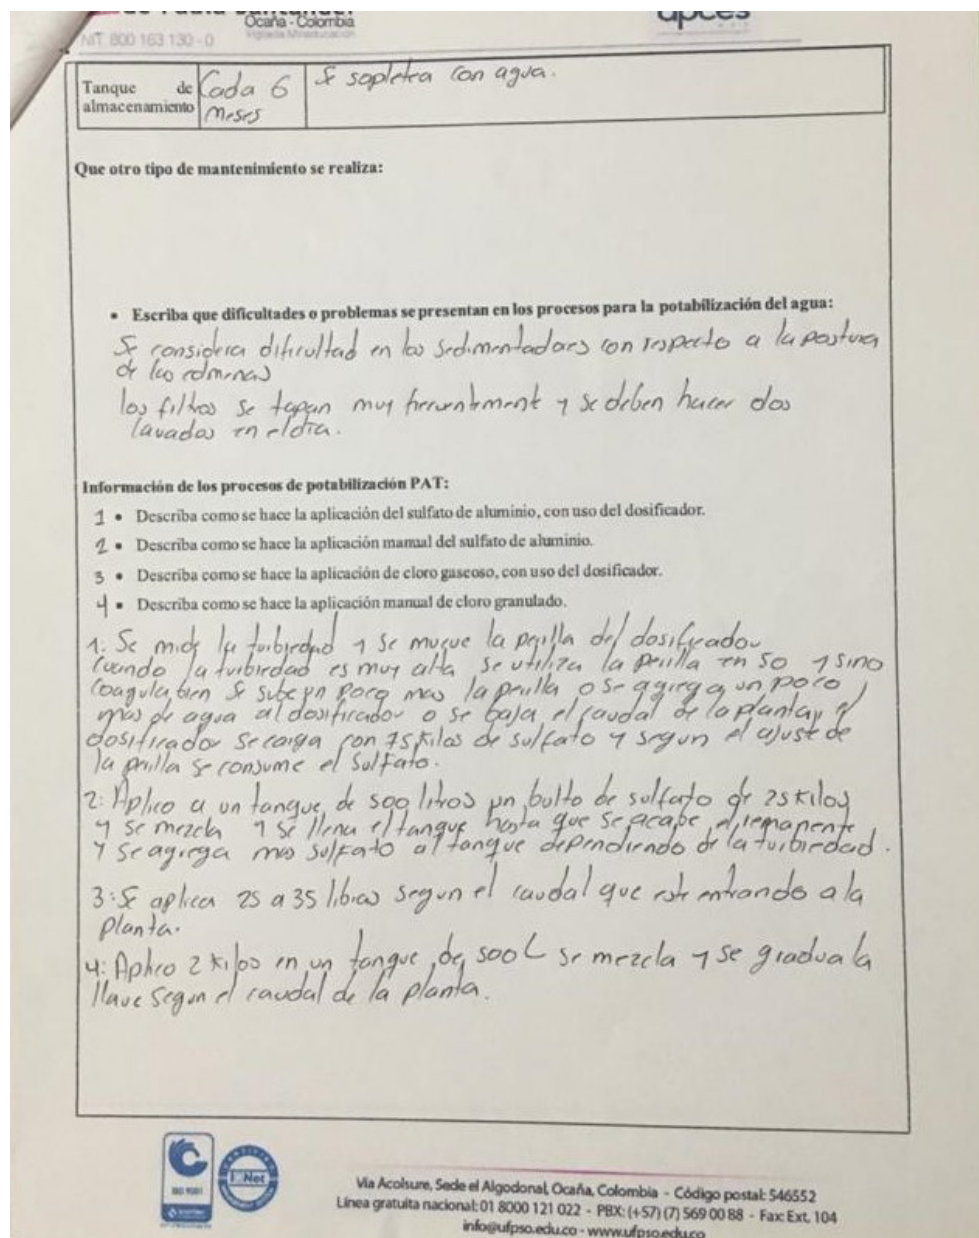 Ocaña - Colombia
Vigilada Mineducación
NIT. 800 163 130 - 0
Tanque de almacenamiento
Cada 6 meses
Se sopletea con agua.
Que otro tipo de mantenimiento se realiza:
• Escriba que dificultades o problemas se presentan en los procesos para la potabilización del agua:
Se considera dificultad en los sedimentadores con respecto a la postura
de las colmenas
los filtros se tapan muy frecuentemente y se deben hacer dos
lavados en el dia.
Información de los procesos de potabilización PAT:
1 • Describa como se hace la aplicación del sulfato de aluminio, con uso del dosificador.
2 • Describa como se hace la aplicación manual del sulfato de aluminio.
3 • Describa como se hace la aplicación de cloro gaseoso, con uso del dosificador.
4 • Describa como se hace la aplicación manual de cloro granulado.
1. Se mide la turbiedad y se mueve la perilla del dosificador
cuando la turbiedad es muy alta se utiliza la perilla en 50 y sino
coagula bien se sube un poco mas la perilla o se agrega un poco
mas de agua al dosificador o se baja el caudal de la planta y el
dosificador se carga con 75 kilos de sulfato y segun el ajuste de
la perilla se consume el sulfato.
2: Aplico a un tanque de 500 litros un bulto de sulfato de 25 kilos
y se mezcla y se llena el tanque hasta que se acabe el remanente
y se agrega mas sulfato al tanque dependiendo de la turbiedad.
3: Se aplica 25 a 35 libras segun el caudal que este entrando a la
planta.
4: Aplico 2 kilos en un tanque de 500 L se mezcla y se gradua la
llave segun el caudal de la planta.
ISO 9001
IQNet
Vía Acolsure, Sede el Algodonal, Ocaña, Colombia - Código postal: 546552
Línea gratuita nacional: 01 8000 121 022 - PBX: (+57) (7) 569 00 88 - Fax: Ext. 104
info@ufpso.edu.co - www.ufpso.edu.co